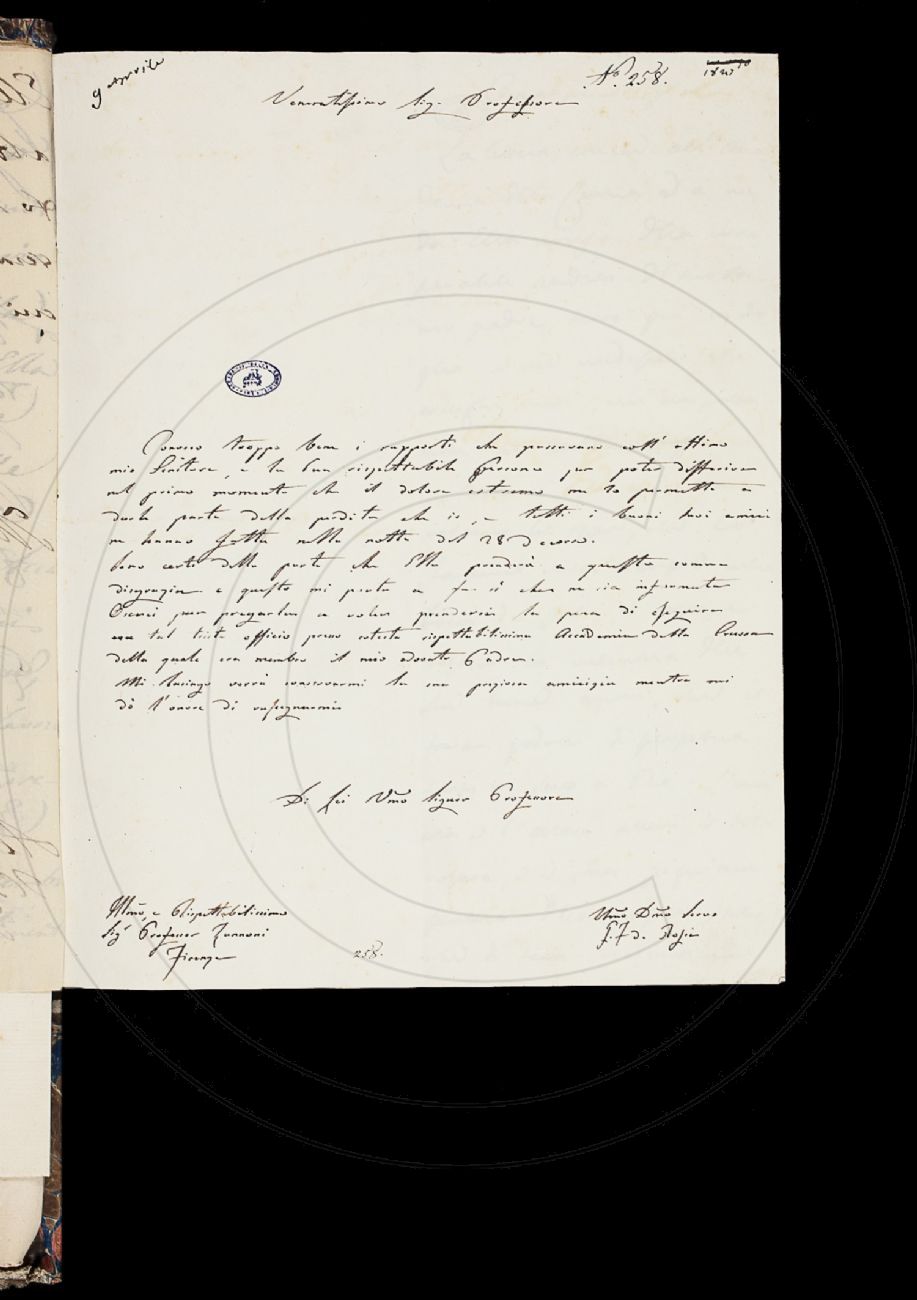 9 Aprile
N.° 258.
Veneratissimo Sig. Professore
Conosco troppo bene i rapporti che passavano coll' ottimo
mio Genitore, e la Sua rispettabile Persona per poter differire
nel primo momento che il dolore estremo me lo permette a
darle parte della perdita che io, e tutti i buoni suoi amici
ne hanno fatta nella notte del 28 Decorso.
Sono certo della parte che Ella prenderà a questa comune
disgrazia e questo mi porta a far sì che ne sia informata
Oserei pur pregarla a voler prendersi la pena di eseguire
un tal triste officio presso cotesta rispettabilissima Accademia della Crusca
della quale era membro il mio adorato Padre.
Mi lusingo vorrà conservarmi la sua pregiosa amicizia mentre mi
dò l'onore di rassegnarmi
Di Lei Umo Signor Professore
Illmo, e Rispettabilissimo
Sigr Professor Zannoni
Firenze
Umo Dmo Servo
258.